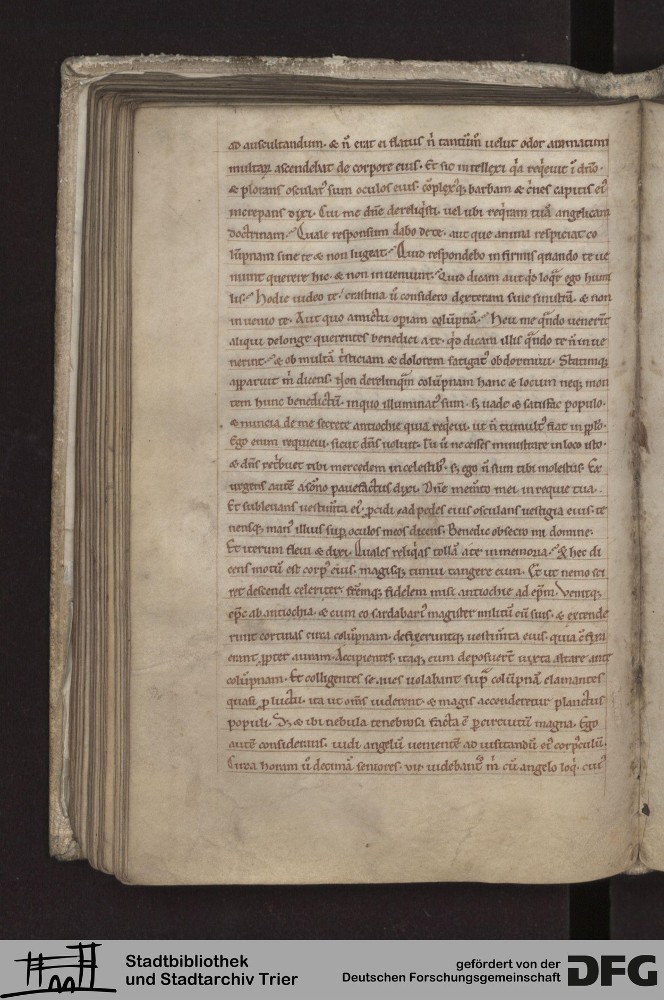 ad auscultandum. & n̄ erat ei flatus n̄ tantūm̄ uelut odor aromatum
multaꝝ ascendebat de corpore eius. Et sic intellexi qͥa reqͥeuit ī dn̄o.
& plorans osculatꝰ sum oculos eius. cōplexꝰq; barbam & cͥnes capitis eiꝰ
increpans dixi. Cui me dn̄e dereliqͥsti. uel ubi reqͥram tuā angelicam
doctrinam. Quale responsum dabo de te. aut que anima respiciat co
lūpnam sine te & non lugeat. Quid respondebo infirmis quando te ue
niunt querere hic. & non inueniunt. Quid dicam aut qͥd loqͣr ego humi
lis. Hodie uideo te. crastina ū considero dexteram siue sinistrā. & non
inuenio te. Aut quo amictu opͥam colūpnā. Heu me qͣndo uenerīt
aliqui de longe querentes benedici a te. qͥd dicam illis qͣndo te n̄ inue
nerint. & ob multā tͥsticiam & dolorem fatigatꝰ obdormiui. Statimq;
apparuit m̄ dicens. Non derelinquā colūpnam hanc & locum neq; mon
tem hunc benedictū. in quo illuminatꝰ sum. sꝫ uade & satisfac populo.
& nuncia de me secrete antiochie quia reqͥeui. ut n̄ tumultꝰ fiat in pp̄lo.
Ego enim requieui. sicut dn̄s uoluit. Tu ū ne cesses ministrare in loco isto.
& dn̄s retͥbuet tibi mercedem in celestibꝰ. sꝫ ego n̄ sum tibi molestus. Ex
urgens autē a sōno pauefactus dixi. Dn̄e memto mei in requie tua.
Et subleuans uestim̄ta eiꝰ. pͦcidi ad pedes eius osculans uestigia eius. te
nensq; manꝰ illius supͣ oculos meos dicens. Benedic obsecro mi domine.
Et iterum fleui & dixi. Quales reliqͥas tollā a te in memoria. & hec di
cens motū est corpꝰ eius. magisq; timui tangere eum. Et ut nemo sci
ret descendi celeriter. frēmq; fidelem misi antiochie ad ep̄m. Venitq;
ep̄c ab antiochia. & cum eo sardabariꝰ magister militū cū suis. & extende
runt cortinas circa colūpnam. defixeruntq; uestim̄ta eius. quia
erant pͦpter aurum. Accipientes itaq; eum deposuert̄ iuxta altare ante
colūpnam. Et colligentes se aues uolabant supͣ colūpnā clamantes
quasi pͦ luctu. ita ut om̄s uiderent. & magis accenderetur planctus
populi. Sꝫ & ibi nebula tenebrosa facta ē pͤ circuitū magna. Ego
autē considerans. uidi angelū uenientē ad uisitandū eiꝰ corpꝰculū.
Circa horam ū decimā seniores. vii. uidebantͬ m̄ cū angelo loqͥ. cuiꝰ
Stadtbibliothek
und Stadtarchiv Trier
gefördert von der
Deutschen Forschungsgemeinschaft
DFG